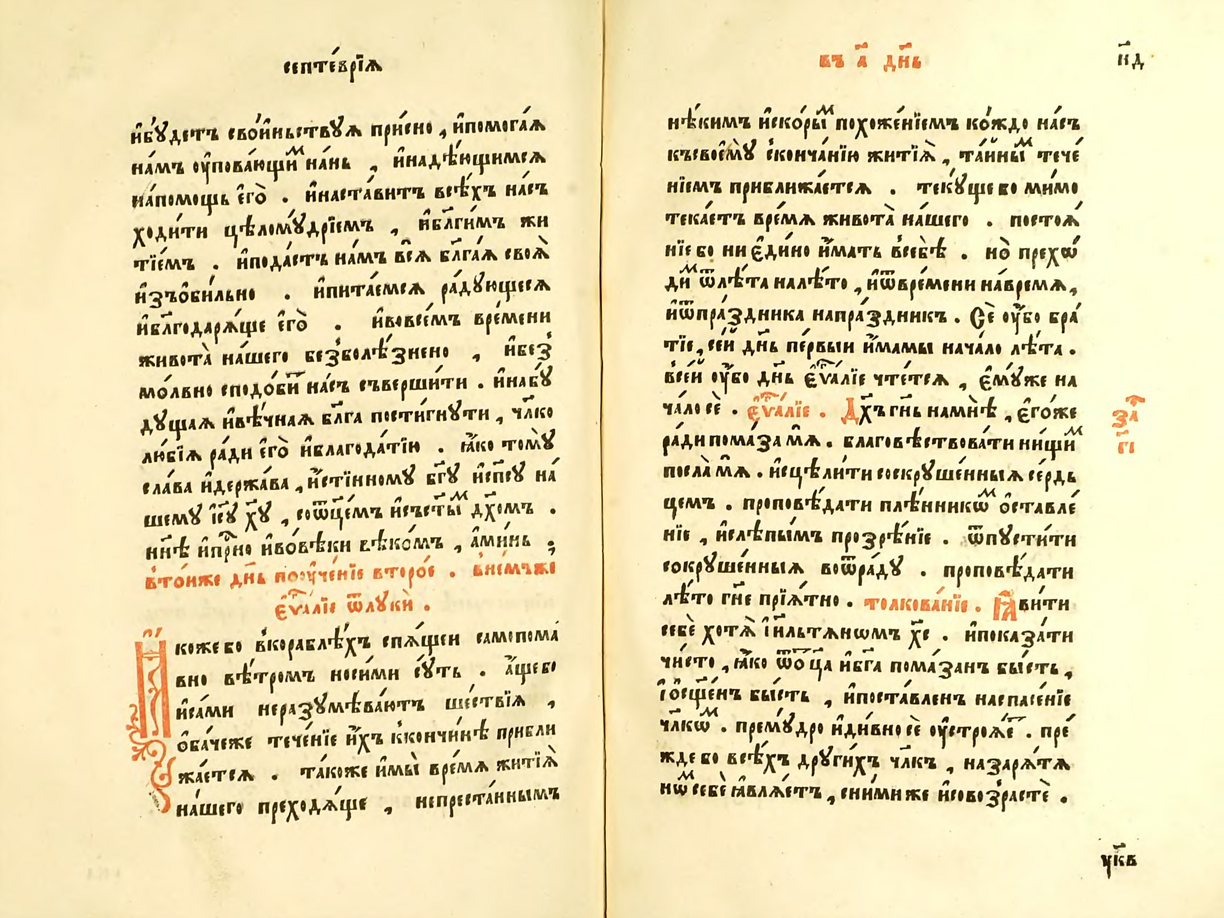 септе́врїѧ
и҆бꙋ́детъ сво́иньствꙋѧ при́сно , и҆помога́ѧ
на́мъ ᲂу҆пова́ющиⷨ на́нь , и҆наде́ѣющимсѧ
на́помощь є҆го̀ . и҆наста́витъ всѣ́хъ на́съ
ходи́ти цѣломꙋ́дрїемъ , и҆бл҃ги́мъ жи
тїе́мъ . и҆пода́стъ на́мъ всѧ̀ бл҃га́ѧ своѧ̀
и҆зъѻби́льно . и҆пита́емсѧ ра́дꙋющесѧ
и҆благодарѧ́ще є҆го̀ . и҆вовсе́мъ вре́мени
живота̀ на́шего безболѣ́знено , и҆без̾
мо́лвно сподо́биⷮ на́съ съверши́ти . и҆набꙋ́
дꙋщаѧ и҆вѣ́чнаѧ бл҃га пости́гнꙋти , чл҃ко
лю́бїѧ ра́ди є҆го̀ и҆благода́тїю . ꙗ҆́ко томꙋ̀
сла́ва и҆держа́ва , и҆́стїнномꙋ бг҃ꙋ и҆сп҃сꙋ на́
шемꙋ і҆с҃ꙋ хр҃ꙋ , соѿц҃е́мъ и҆съст҃ыⷨ дх҃омъ .
нн҃ѣ и҆пр҇но и҆вовѣ́ки вѣко́мъ , а҆ми́нь ;
в̾то́йже дн҃ь поᲂуче́нїе второ́е . в̾не́мъже
є҆ѵⷢ҇а́лїе ѿлꙋки̏ .
Ꙗкоже бо в̾корабле́хъ спѧ́щеи самопома́
вно вѣ́тромъ носи́ми сꙋ́ть . а҆́ще бо
и҆са́ми неразꙋмѣва́ютъ ше́ствїѧ ,
ѻ҆ба́чеже тече́нїе и҆́хъ к̾кончи́нѣ прибли
жа́етсѧ . та́коже и҆мы̀ вре́мѧ житїѧ̀
на́шего преходѧ́ще , непреста́ннымъ
въ а҃ дн҃ь
н҃д
нѣ́кимъ и҆ско́рыⷨ похожде́нїемъ ко́ждо на́съ
къ своемꙋ̀ сконча́нїю житїѧ̀ , та́йныⷨ тече́
нїемъ приближа́етсѧ . текꙋ́ще бо мимо
тека́етъ вре́мѧ живота̀ на́шего . постоѧ́
нїе бо ни є҆ди́но и҆́мать всебѣ̀ . но̀ прехо́
диⷨ ѿлѣ́та налѣ́то , и҆ѿвре́мени навре́мѧ ,
и҆ѿпра́здника напра́здникъ . Сѐ ᲂу҆́бо бра́
тїе , се́й дн҃ь пе́рвыи и҆́мамы нача́ло лѣ́та .
все́й ᲂу҆́бо дн҃ь є҆ѵⷢ҇а́лїе чте́тсѧ , є҆мꙋ́же на
ча́ло сѐ . є҆ѵⷢ҇а́лїе . Дх҃ъ гн҃ь на мнѣ̀ , є҆го́же
ра́ди пома́за мѧ̀ . благовѣствова́ти ни́щиⷨ
посла̀ мѧ̀ . и҆сцѣли́ти сокрꙋше́нныѧ се́рдь
цемъ . проповѣ́дати плѣ́нникѡⷨ ѻ҆ставле́
нїе , и҆слѣпы́мъ прозрѣ́нїе . ѿпꙋсти́ти
сокрꙋше́нныѧ воѿра́дꙋ . проповѣ́дати
лѣ́то гн҃е прїѧ́тно . толкова́нїе . Ꙗ҆ви́ти
себѐ хотѧ̀ і҆и҃льтѧномъ хс҃е . и҆показа́ти
чи́сто , ꙗ҆́ко ѿѻц҃а̀ и҆бг҃а пома́занъ бы́сть ,
і҆ѻ҆сщ҃е́нъ бы́сть , и҆поста́вленъ наспасе́нїе
чл҃кѡⷨ . премꙋ́дро и҆ди́вно сѐ ᲂу҆строѧ́еⷮ . пре́
жде бо всѣ́хъ дрꙋги́хъ чл҃къ , назарѧ́тѧ
нѡⷨ себѐ ꙗ҆влѧ́етъ , сни́миже и҆совозрастѐ .
за҃
г҃і
ꙋ҃кв